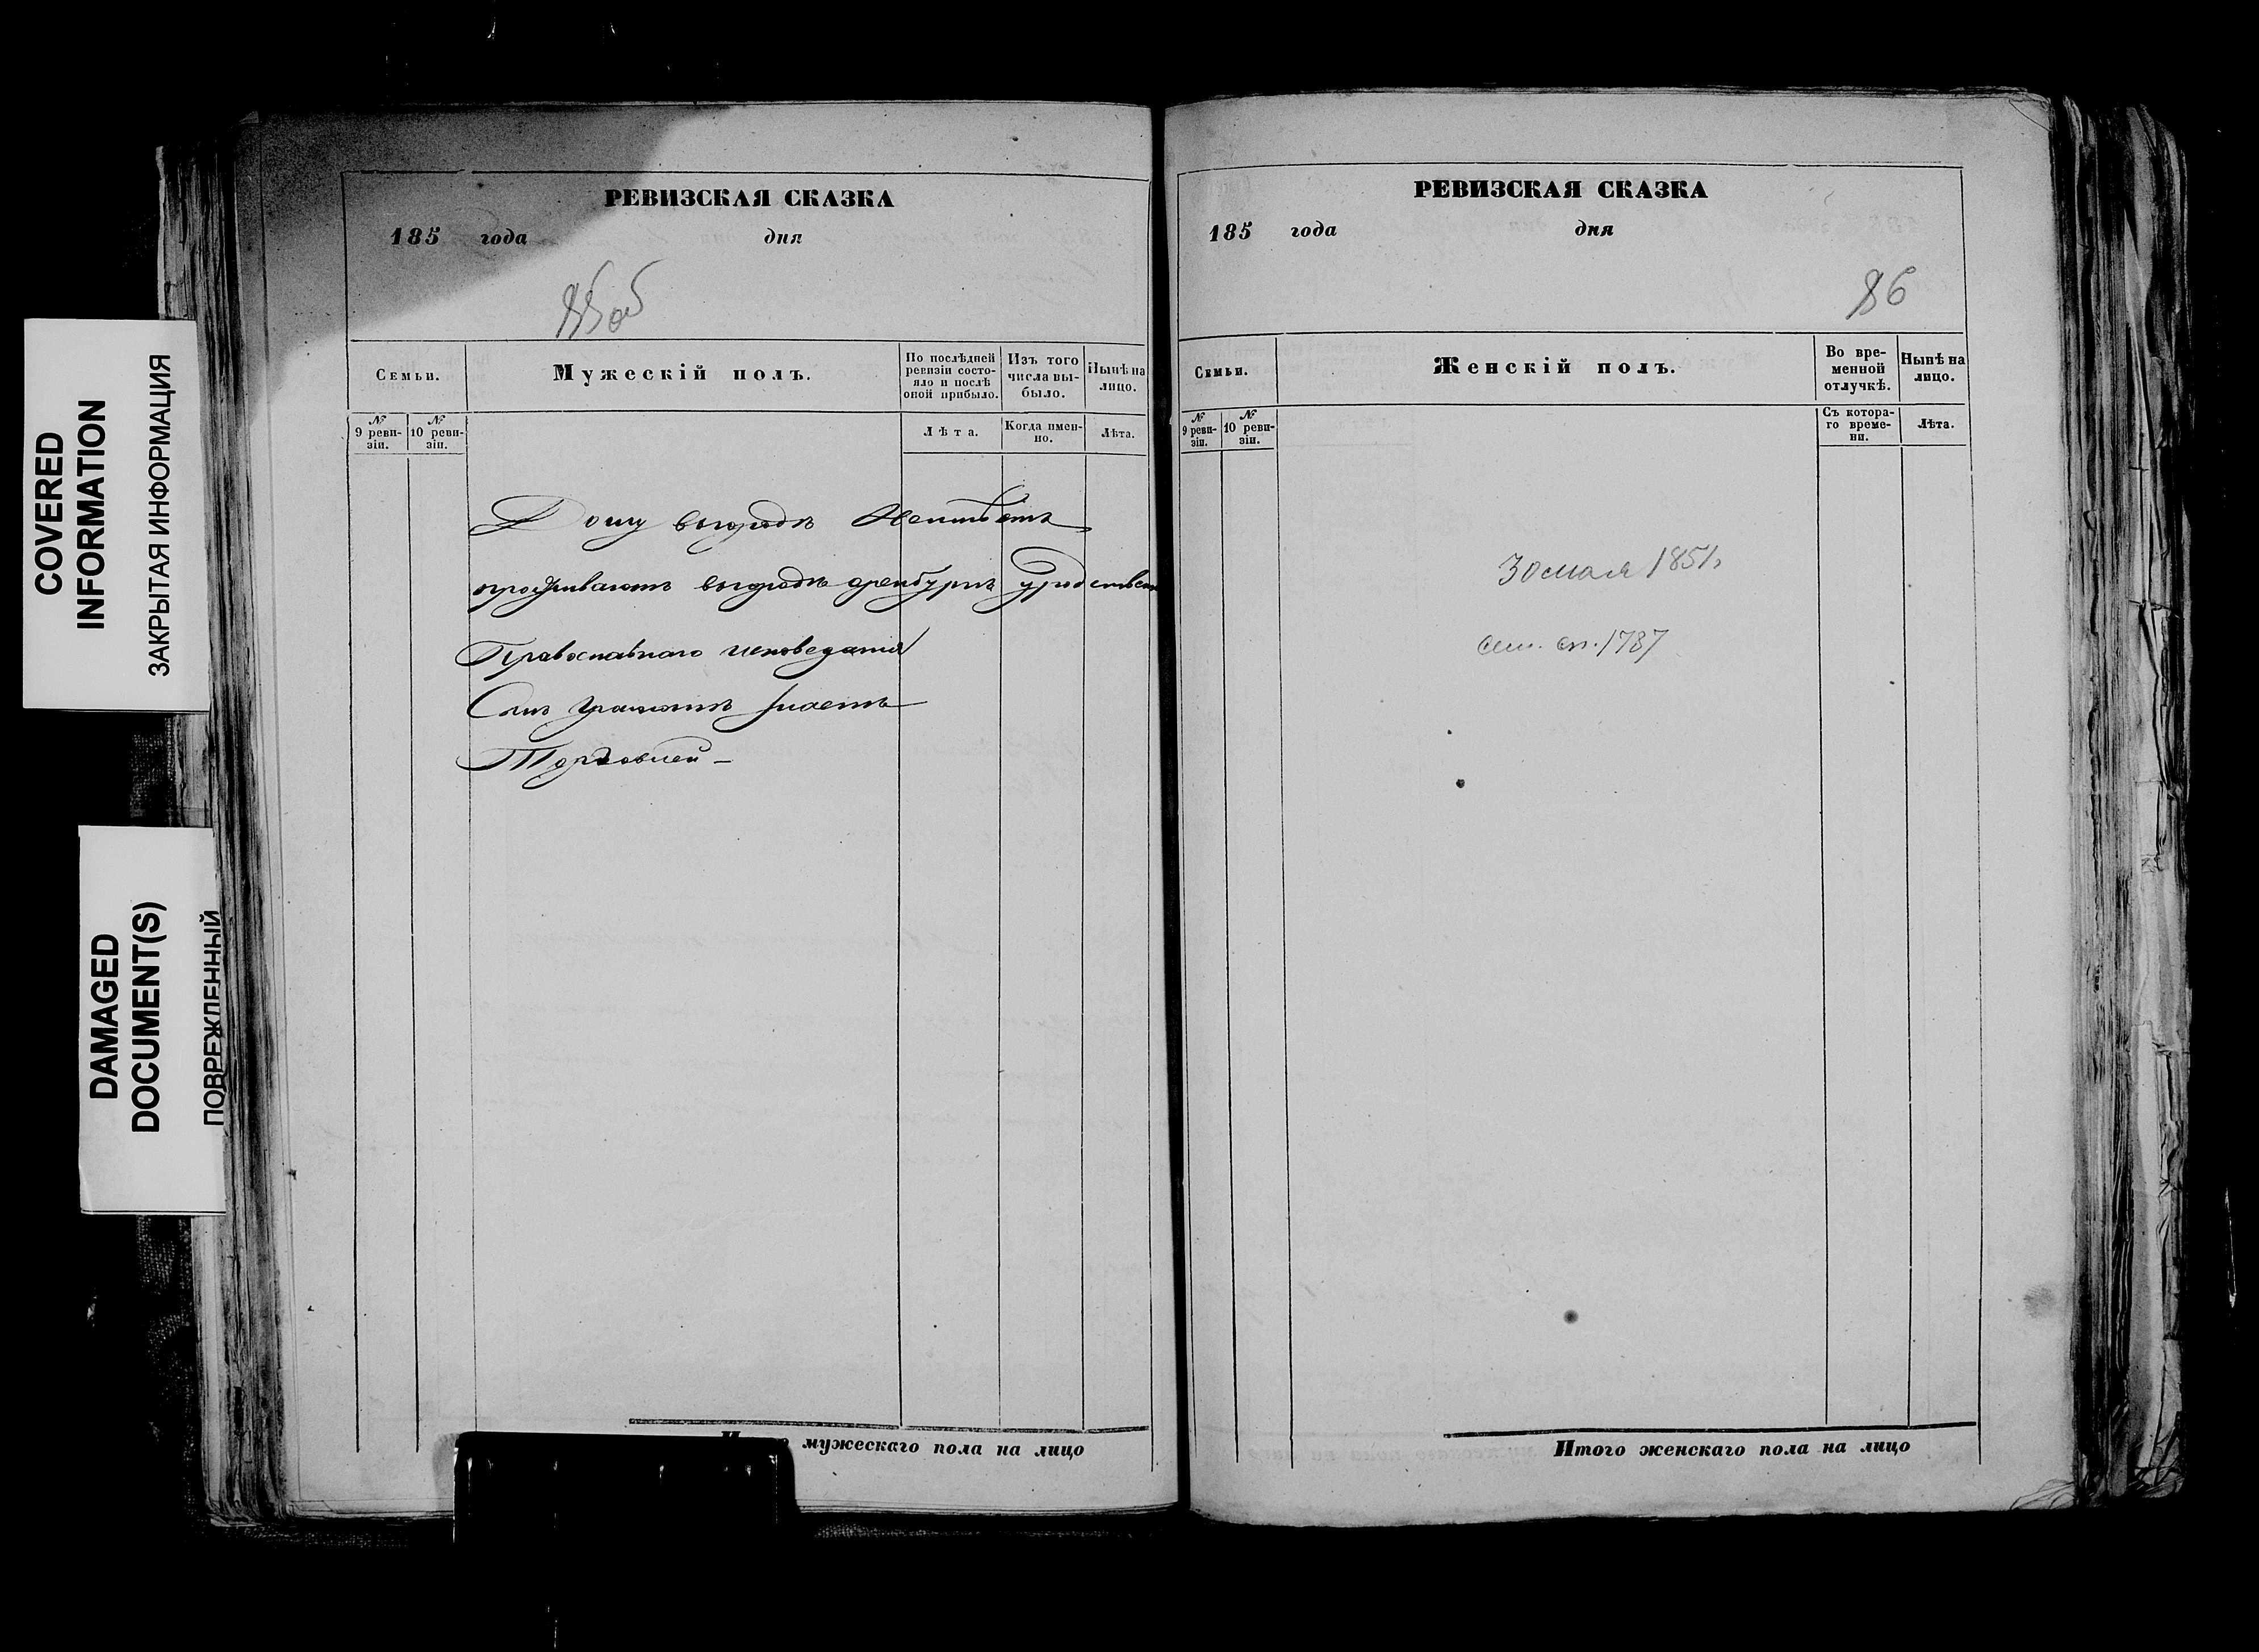 COVERED
INFORMATION
ЗАКРЫТАЯ ИНФОРМАЦИЯ
DAMAGED
DOCUMENT(S)
ПОВРЕЖДЕННЫЙ
РЕВИЗСКАЯ СКАЗКА
185 года дня
85об
Семьи.
Мужескій полъ.
По послѣдней
ревизіи состо-
яло и послѣ
оной прибыло.
Изъ того
числа вы-
было.
Нынѣ на
лицо.
№
9 реви-
зіи.
№
10 реви-
зіи.
Лѣта.
Когда имен-
но.
Лѣта.
Дому въгородѣ Неимѣетъ
проживаютъ въгородѣ оренбургѣ
Православнаго исповеданія
Самъ грамотѣ знаетъ
Торговлей –
мужескаго пола на лицо
РЕВИЗСКАЯ СКАЗКА
185 года дня
86
Семьи.
Женскій полъ.
Во вре-
менной
отлучкѣ.
Нынѣ на
лицо.
№
9 реви-
зіи.
№
10 реви-
зіи.
Съ котора-
го време-
ни.
Лѣта.
30 мая 1851г
1787
Итого женскаго пола на лицо